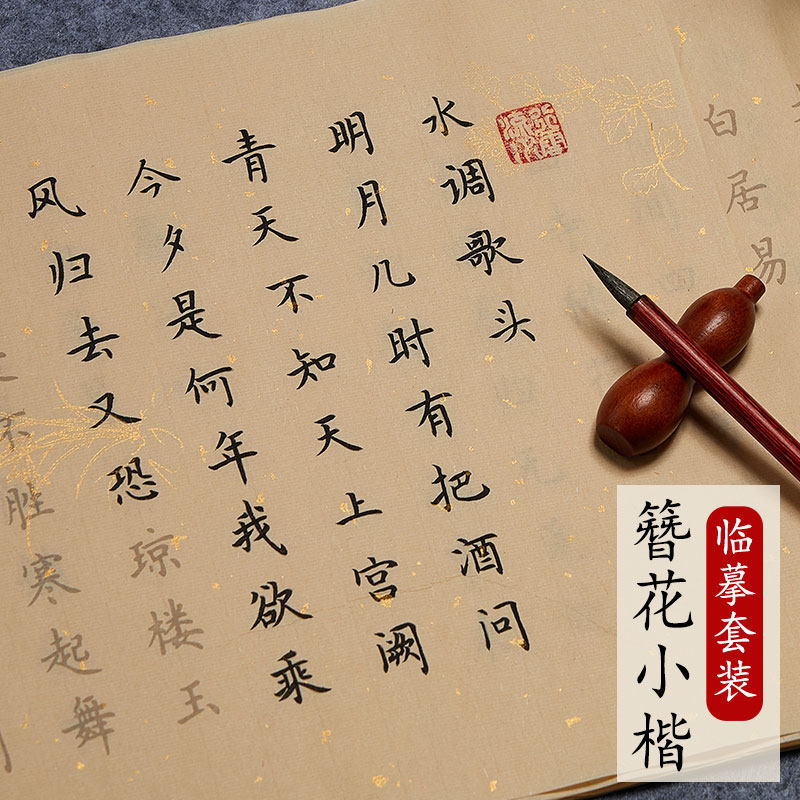 白居易
水调歌头
明月几时有把酒问
青天不知天上宫阙
今夕是何年我欲乘
风归去又恐琼楼玉
胜寒起舞
临摹套装
簪花小楷